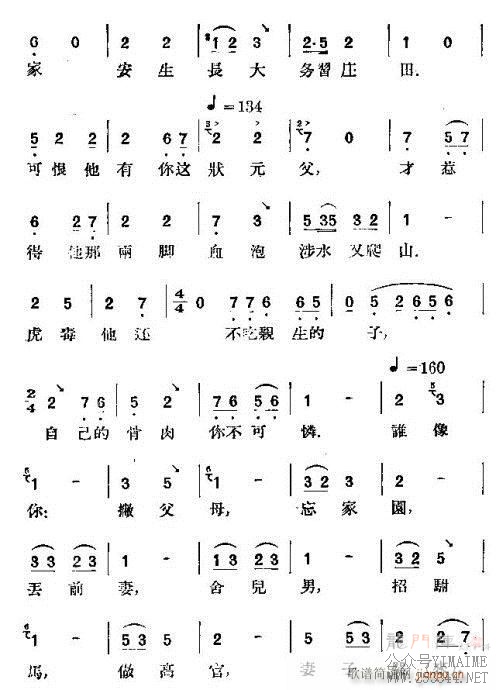 6 0 | 2 2 | 1 2 3 | 2·5 2 | 4 0
家 安生 長大 务習庄 田.
♩=134
5 2 2 | 2 6 7 | 2 2 | 7 0 | 7 5 7
可恨他 有你这 狀元 父, 才惹
6 2 7 | 2 2 | 7 3 | 5 35 3 2 | 2 1
得 他那 兩脚 血泡 涉水又爬 山.
2 5 | 2 7 | 4/4 0 7 6 7 6 6 | 0 5 2 6 5 6
虎毒 他还 不吃親生的 子,
♩=160
2/4 2 7 6 | 6 2 | 7 6 5 6 | 1 - | 2 3
自己的 骨肉 你不可 憐. 誰像
1 - | 3 5 | 1 - | 3 2 3 | 1 -
你: 撇父 母, 忘家 園,
3 3 2 3 | 1 - | 3 3 2 3 | 1 - | 5 5
丟前 妻, 舍兒 男, 招駙
1 - | 1 5 3 | 2 - | 5 5 3 | 2 2 7
馬, 做高 官, 妻子
公众号YIMAIME
歌谱简谱网
jianpu.cn